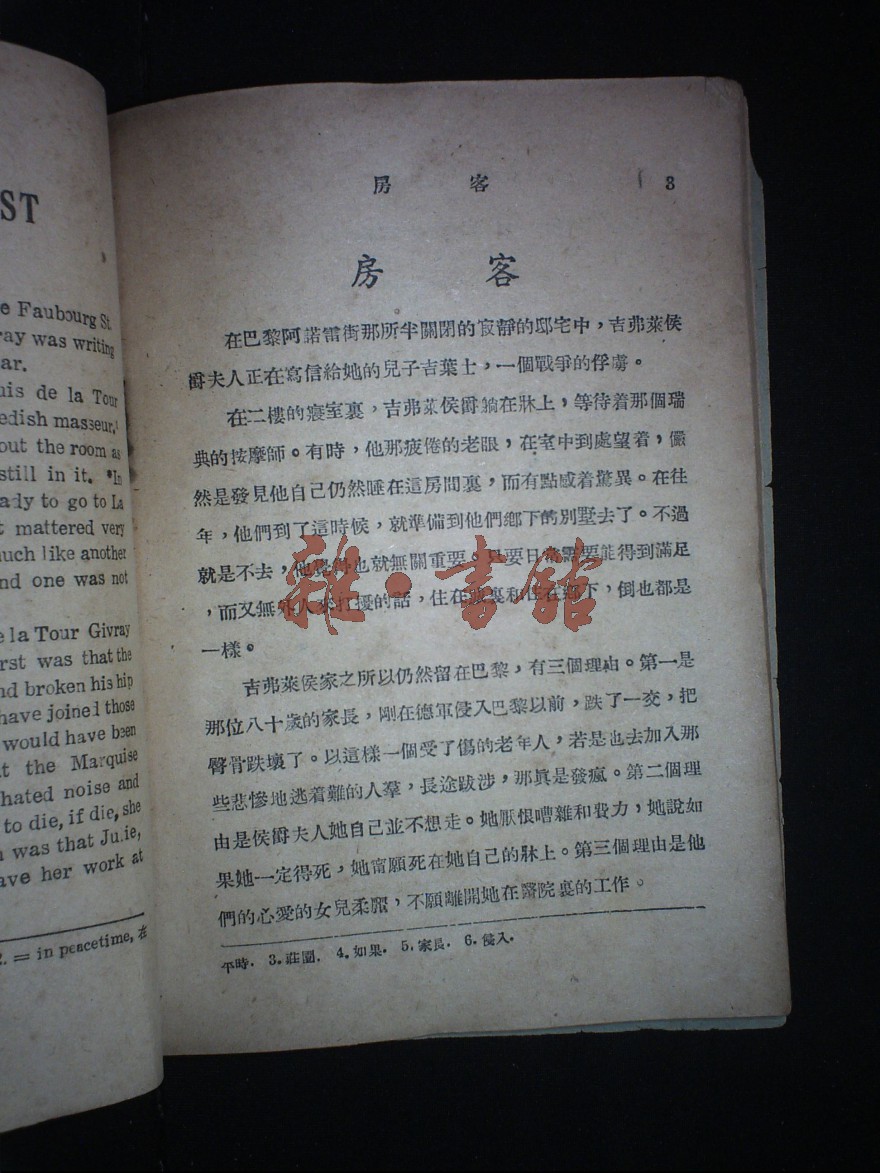 ST
e Faubourg St.
ray was writing
ar.
uis de la Tour
edish masseur,¹
out the room as
still in it. ²In
ady to go to La
t mattered very
much like another
nd one was not
e la Tour Givray
rst was that the
nd broken his hip
have joined those
would have been
at the Marquise
hated noise and
to die, if die, she
n was that Julie,
ave her work at
2. = in peacetime, 在
房 客 3
房 客
在巴黎阿諾雷街那所半關閉的寂靜的邸宅中，吉弗萊侯
爵夫人正在寫信給她的兒子吉葉士，一個戰爭的俘虜。
在二樓的寢室裏，吉弗萊侯爵躺在牀上，等待着那個瑞
典的按摩師。有時，他那疲倦的老眼，在室中到處望着，儼
然是發見他自己仍然睡在這房間裏，而有點感着驚異。在往
年，他們到了這時候，就準備到他們鄉下的別墅去了。不過
就是不去，他覺得也就無關重要。只要日常需要能得到滿足
，而又無外人來打擾的話，住在城裏和住在鄉下，倒也都是
一樣。
吉弗萊侯家之所以仍然留在巴黎，有三個理由。第一是
那位八十歲的家長，剛在德軍侵入巴黎以前，跌了一交，把
臀骨跌壞了。以這樣一個受了傷的老年人，若是也去加入那
些悲慘地逃着難的人羣，長途跋涉，那眞是發瘋。第二個理
由是侯爵夫人她自己並不想走。她厭恨嘈雜和費力，她說如
果她一定得死，她甯願死在她自己的牀上。第三個理由是他
們的心愛的女兒柔麗，不願離開她在醫院裏的工作。
平時. 3. 莊園. 4. 如果. 5. 家長. 6. 侵入.
雜·書館